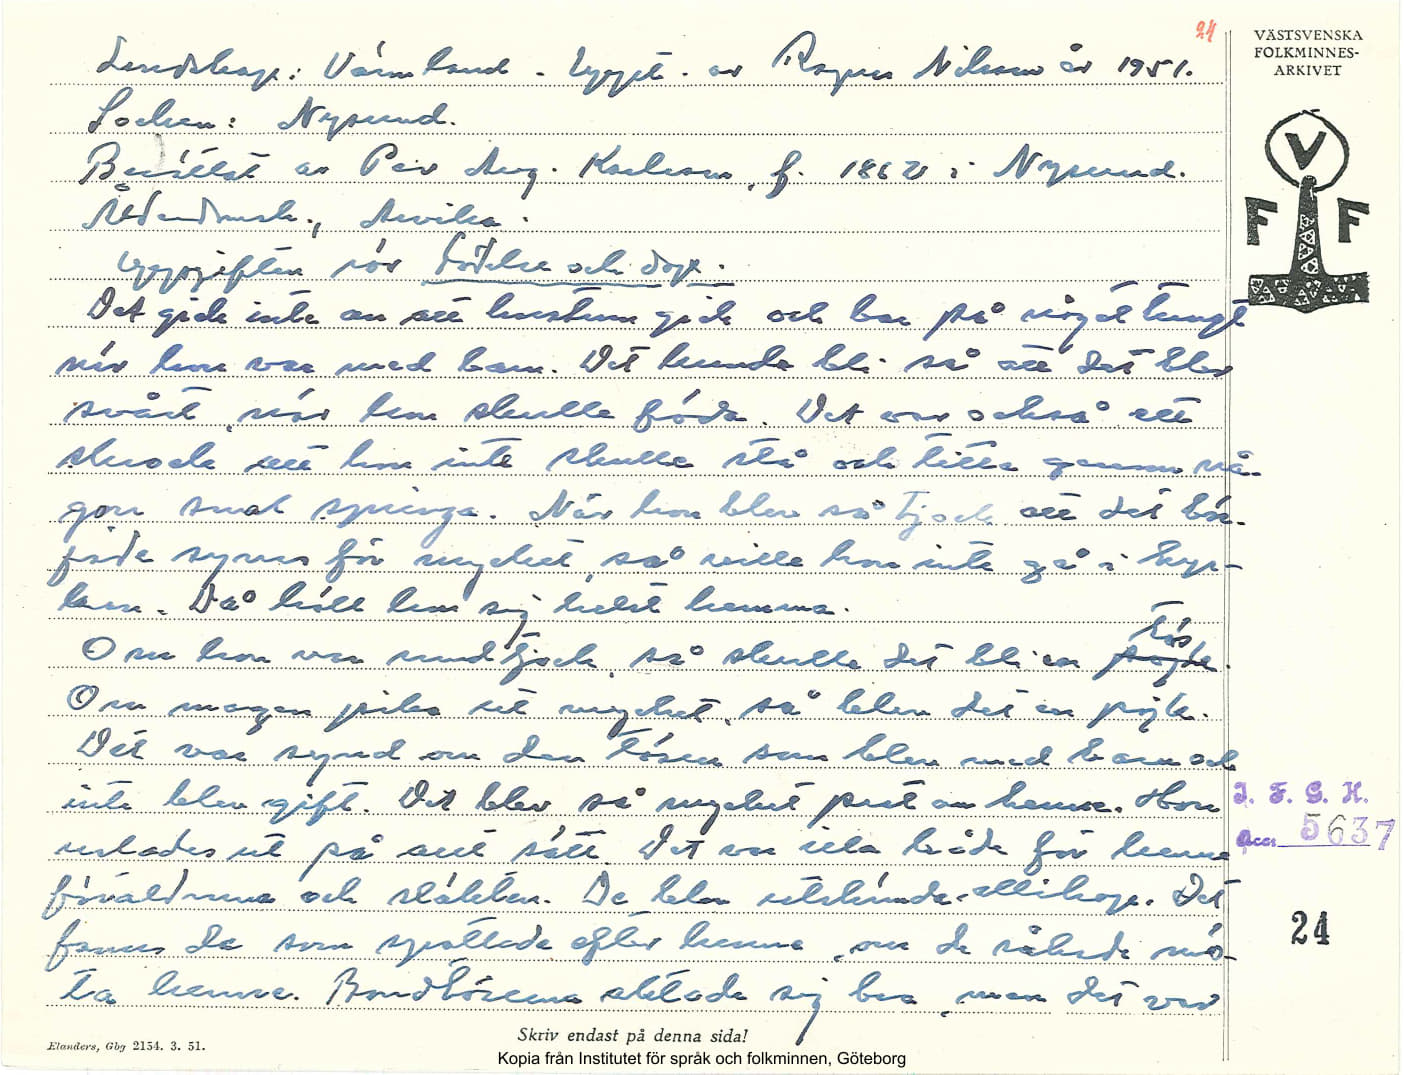 24
VÄSTSVENSKA
FOLKMINNES-
ARKIVET
V
F F
Landskap: Värmland. Uppt. av Ragnar Nilsson år 1951.
Socken: Nysund.
Berättat av Per Aug. Karlsson, f. 1862 i Nysund.
Arvika.
Uppgiften rör Födelse och dop.
Det gick inte an att hustrun gick och bar på något tungt
när hon var med barn. Det kunde bli så att det blev
svårt när hon skulle föda. Det var också ett
skrock att hon inte skulle stå och titta genom nå-
gon smal springa. När hon blev så tjock att det bör-
jade synas för mycket, så ville hon inte gå i kyr-
kan. Då höll hon sig helst hemma.
Om hon var rundtjock, så skulle det bli en pojke tös.
Om magen pekar ut mycket, så blev det en pojk.
Det var synd om den tösen som blev med barn och
inte blev gift. Det blev så mycket prat om henne. Hon
ut på allt sätt. Det var illa både för henne
föräldrarna och släkten. De blev utskämda allihop. Det
fanns de som spottade efter henne, om de råkade mö-
ta henne. Bondtöserna aktade sig bra, men det var
I. F. G. H.
Acc. 5637
24
Skriv endast på denna sida!
Elanders, Gbg 2154. 3. 51.
Kopia från Institutet för språk och folkminnen, Göteborg